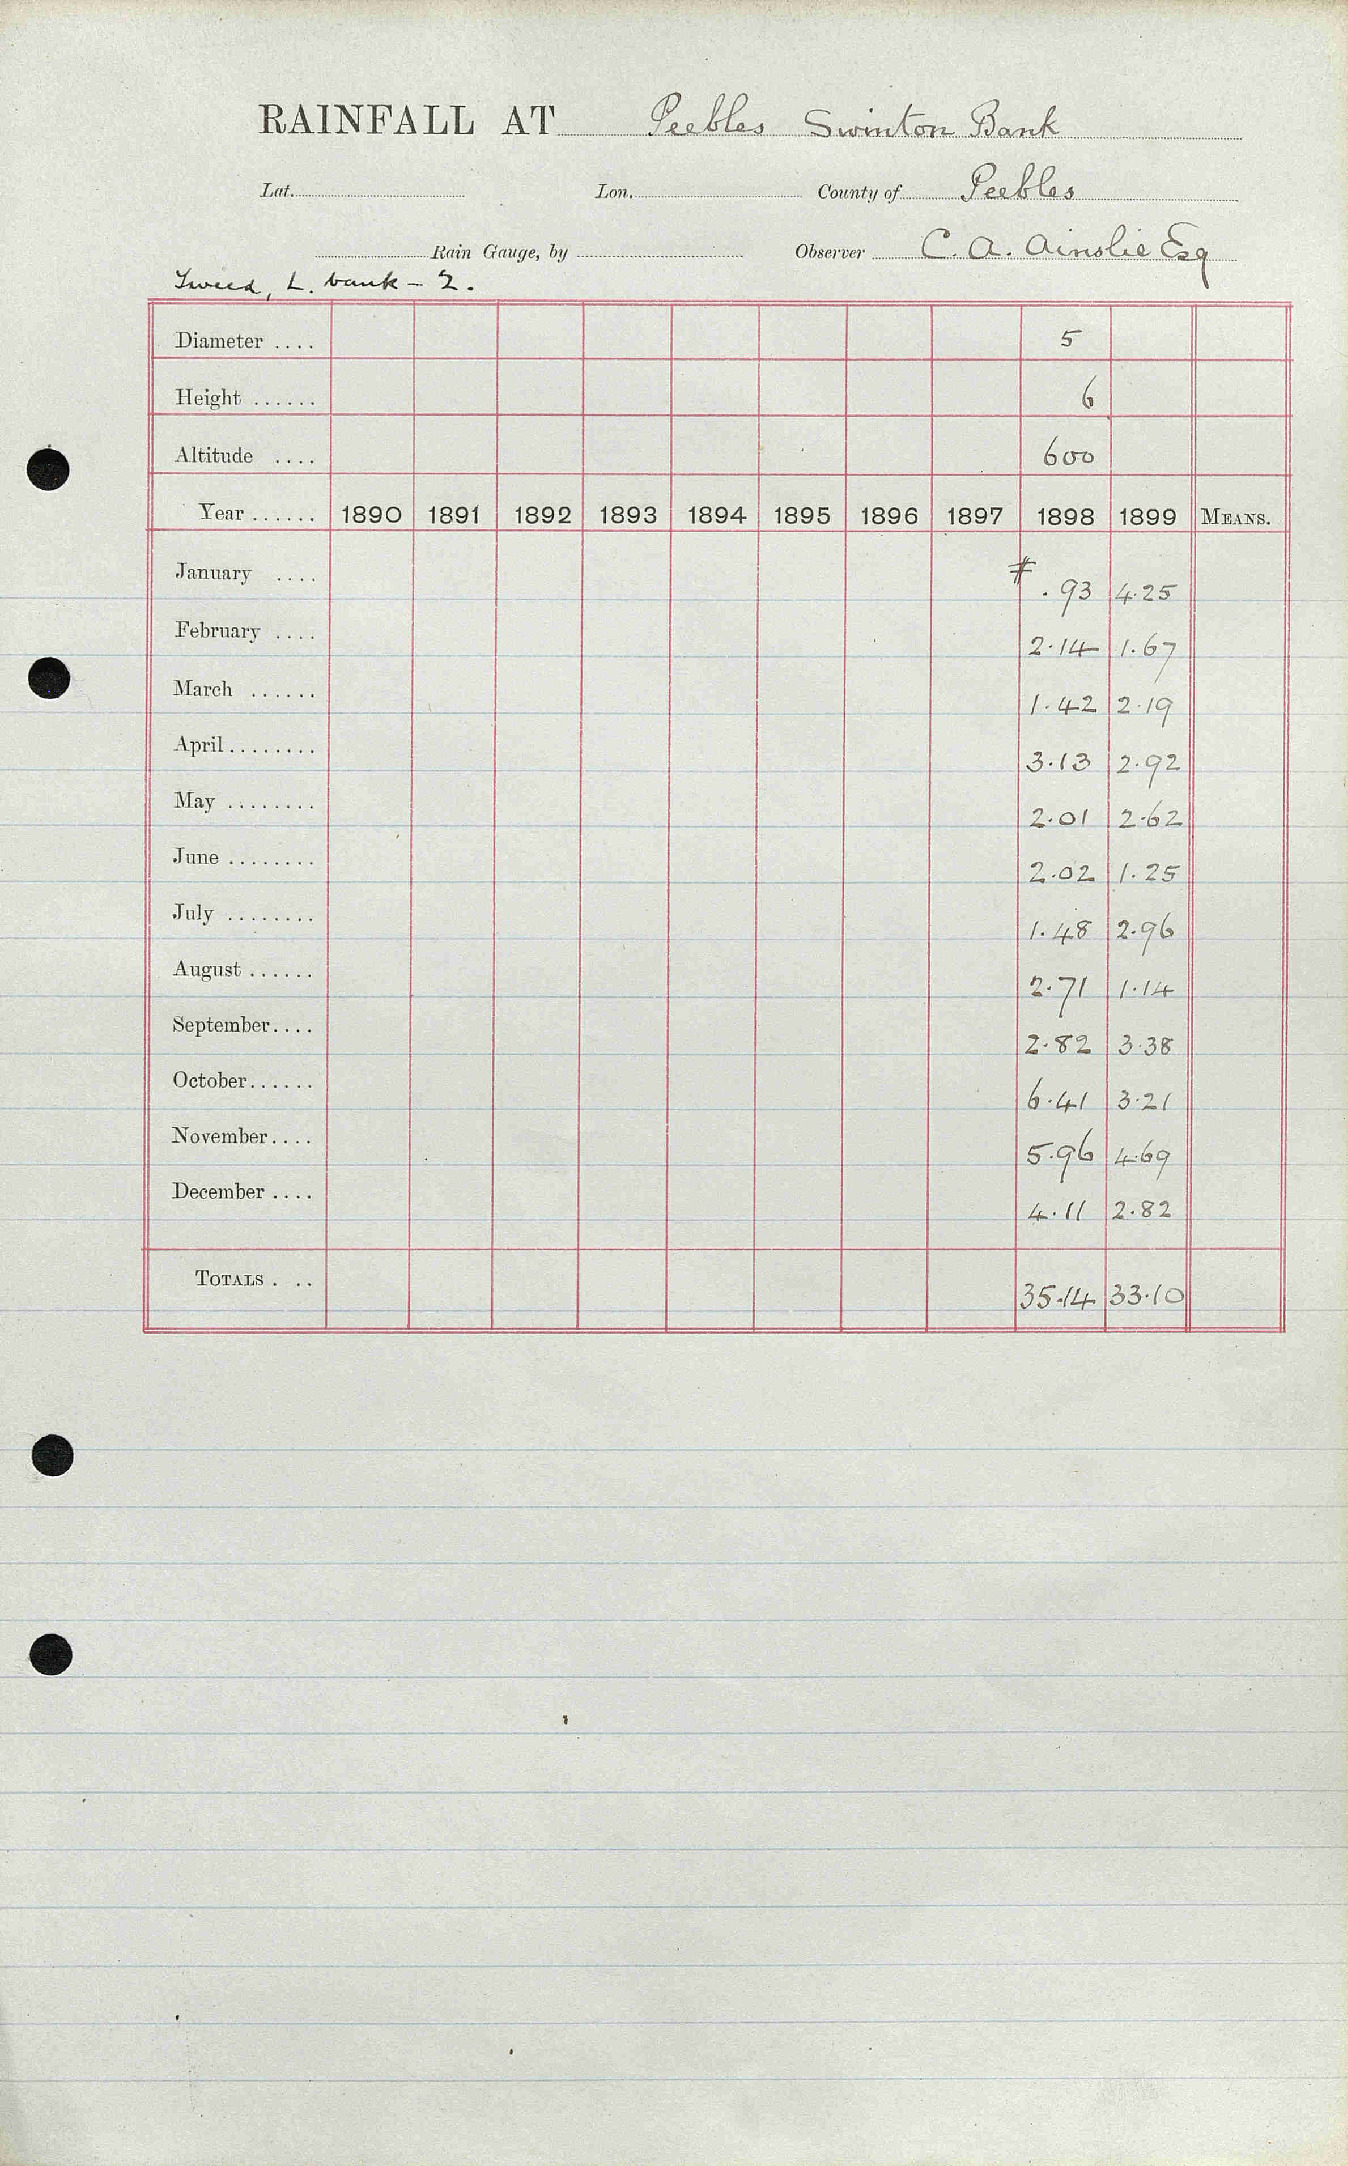 RAINFALL AT Peebles Swinton Bank
Lat. Lon. County of Peebles
Rain Gauge, by Observer C. A. Ainslie Esq
Tweed, L. bank - 2.
Diameter .... 5
Height ...... 6
Altitude .... 600
Year ...... 1890 1891 1892 1893 1894 1895 1896 1897 1898 1899 MEANS.
January .... # .93 4.25
February .... 2.14 1.67
March ...... 1.42 2.19
April ........ 3.13 2.92
May ........ 2.01 2.62
June ........ 2.02 1.25
July ........ 1.48 2.96
August ...... 2.71 1.14
September.... 2.82 3.38
October...... 6.41 3.21
November.... 5.96 4.69
December .... 4.11 2.82
TOTALS . .. 35.14 33.10